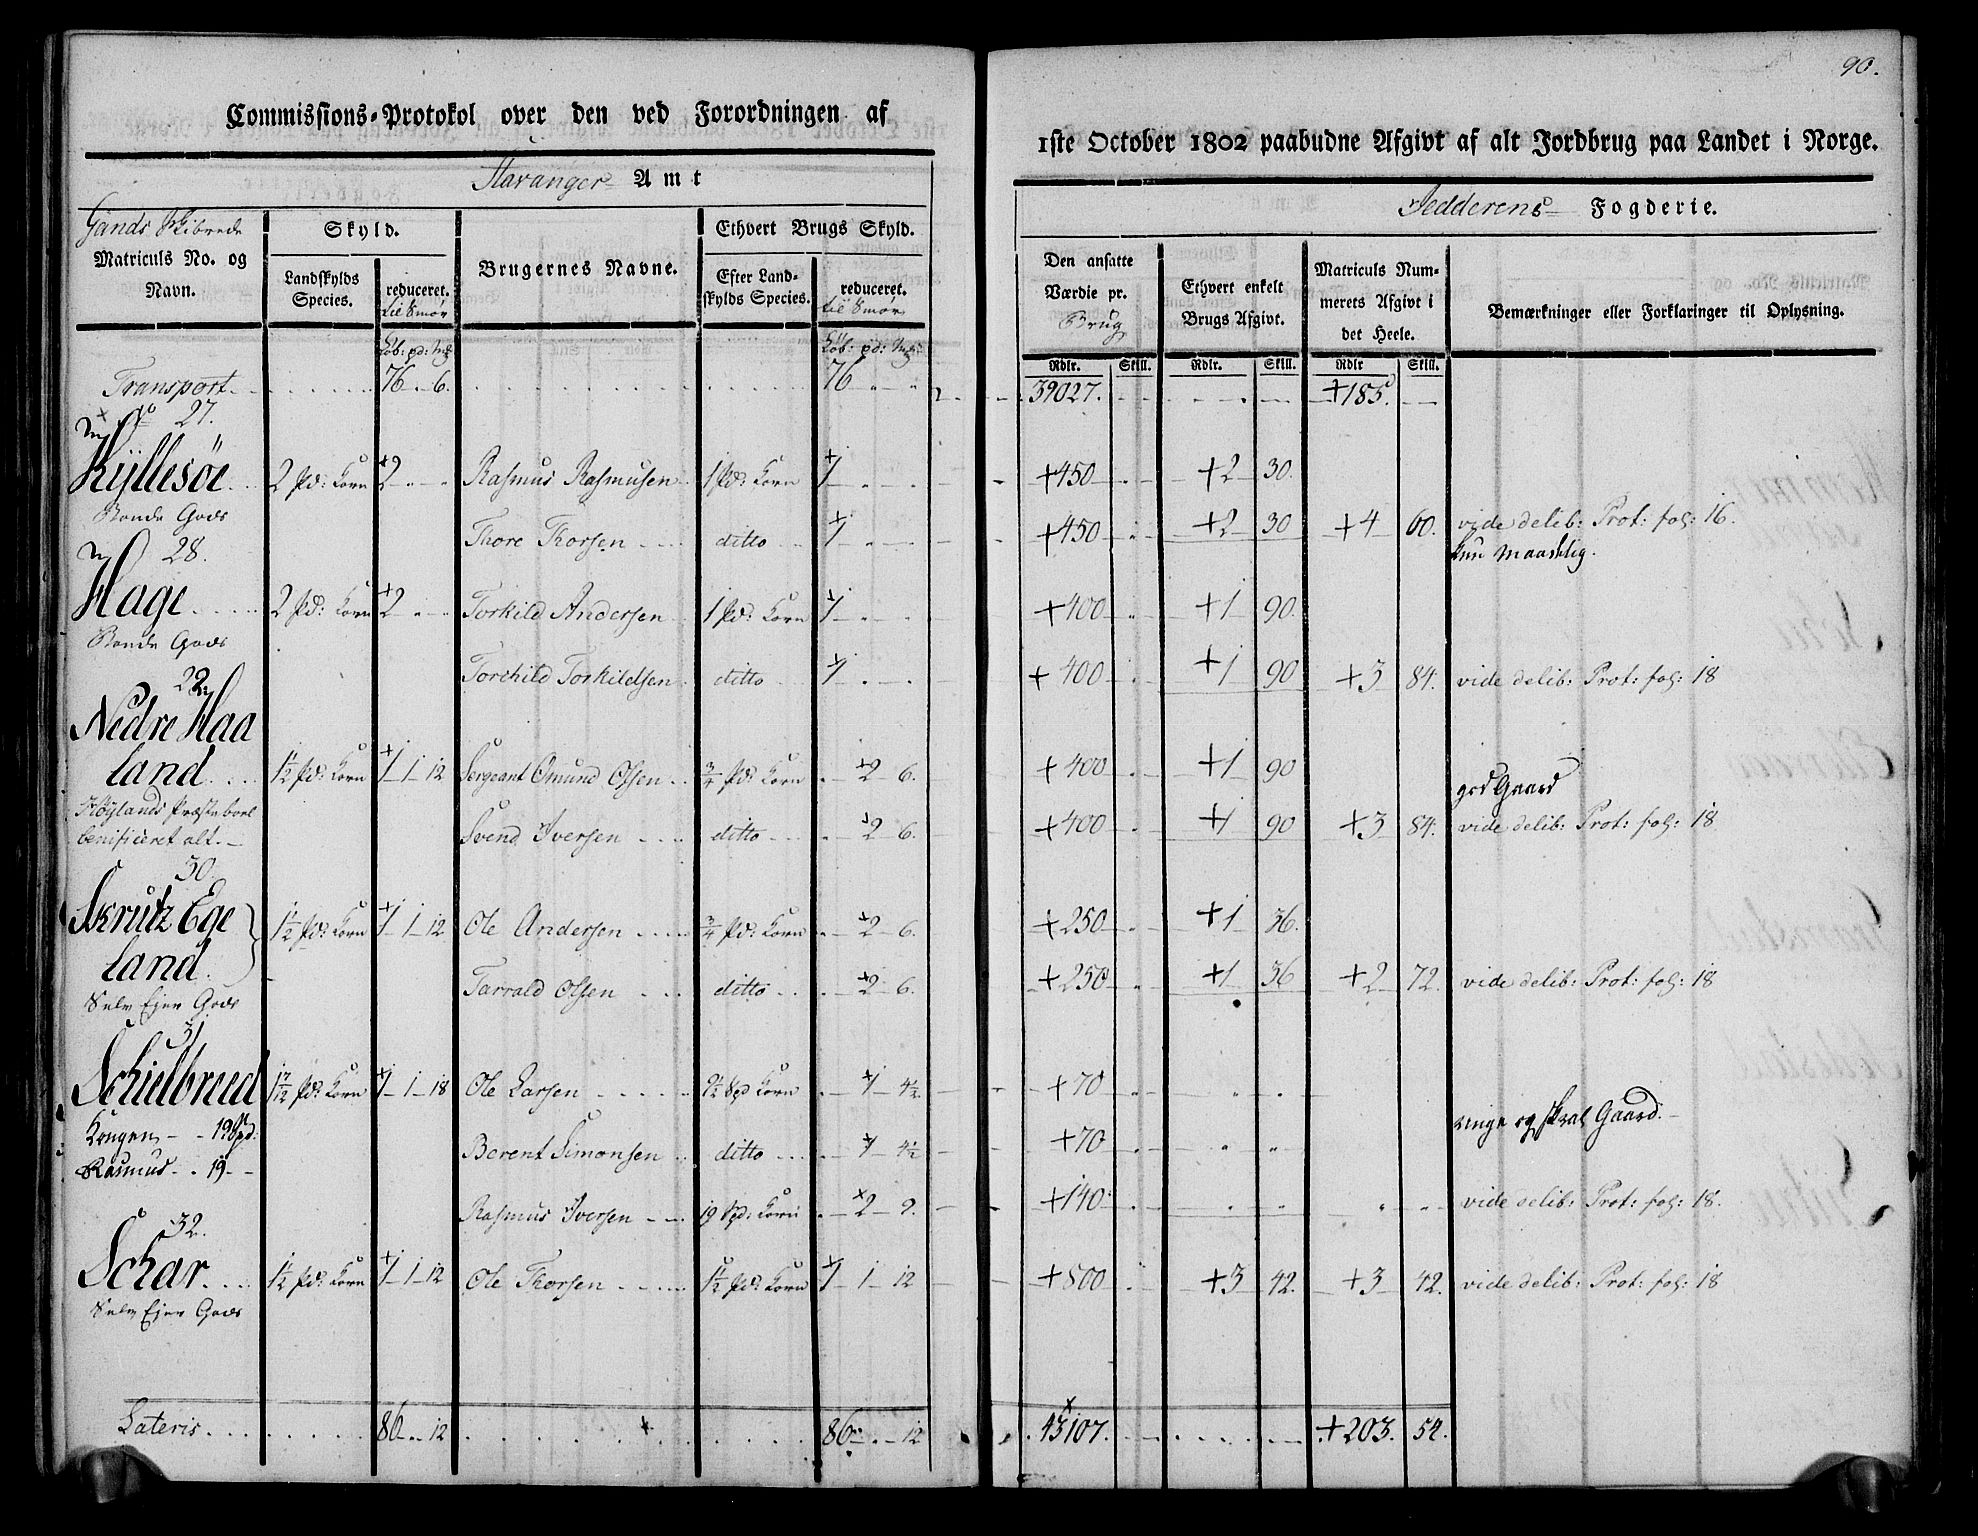 90.
Commissions-Protokol over den ved Forordningen af
1ste October 1802 paabudne Afgivt af alt Jordbrug paa Landet i Norge.
Stavanger Amt
Jedderens Fogderie.
Gands Skibrede
Matriculs No. og Navn.
Skyld.
Landskylds Species.
reduceret. til Smør
Brugernes Navne.
Ethvert Brugs Skyld.
Efter Landskylds Species.
reduceret. til Smør
Den ansatte Værdie pr. Brug
Ethvert enkelt Brugs Afgivt.
Matriculs Nummerets Afgivt i det Heele.
Bemærkninger eller Forklaringer til Oplysning.
Rdlr. Skill. Rdlr. Skill. Rdlr Skill.
Transport 76 „ 6. 76 „ „ 39027. +185.
No 27.
Kyllesøe 2 Pd: Korn 2 „ „ Rasmus Rasmusen 1 Pd: Korn 1 „ „ +450 „ +2 30.
Bonde Gods
Thore Thorsen ditto 1 „ „ +450 „ +2 30 +4 60. vide delib: Prot: fol: 16.
kun maadelig.
28.
Hage 2 Pd: Korn 2 „ „ Torkild Andersen 1 Pd: Korn 1 „ „ +400 „ +1 90.
Bonde Gods
Torchild Torkildsen ditto 1 „ „ +400 „ +1 90 +3 84. vide delib: Prot: fol: 18
Nedre Haa
land 1½ Pd: Korn 1 1 12 Sergeant Omund Olsen ¾ Pd: Korn „ 2 6. +400 „ +1 90
god Gaard
Høylands Præstebord
benificeret alt.
Svend Iversen ditto „ 2 6. +400 „ +1 90 +3 84. vide delib: Prot: fol: 18
30.
Skrutz Ege
land. 1½ Pd: Korn 1 1 12 Ole Andersen ¾ Pd: Korn „ 2 6. +250 „ +1 36.
Selv Ejer Gods
Tarrald Olsen ditto „ 2 6. +250 „ +1 36 +2 72. vide delib: Prot: fol: 18
31
Schielbreed 1 7/12 Pd: Korn 1 1 18 Ole Larsen 9½ Spd Korn „ 1 4½. +70 „ „ „
ringe og skral Gaard.
Kongen 19 Spd:
Berent Simonsen ditto 1 4½ +70 „ „
Rasmus 19
Rasmus Iversen 19 Spd: Korn „ 2 9. +140 „ „ „ „ „ vide delib: Prot: fol: 18.
32.
Schar 1½ Pd: Korn 1 1 12 Ole Thorsen 1½ Pd: Korn 1 1 12 +800 „ +3 42. +3 42. vide delib: Prot: fol: 18
Selv Ejer Gods
Lateris 86 „ 12 86 „ 12 43107. +203. 54.